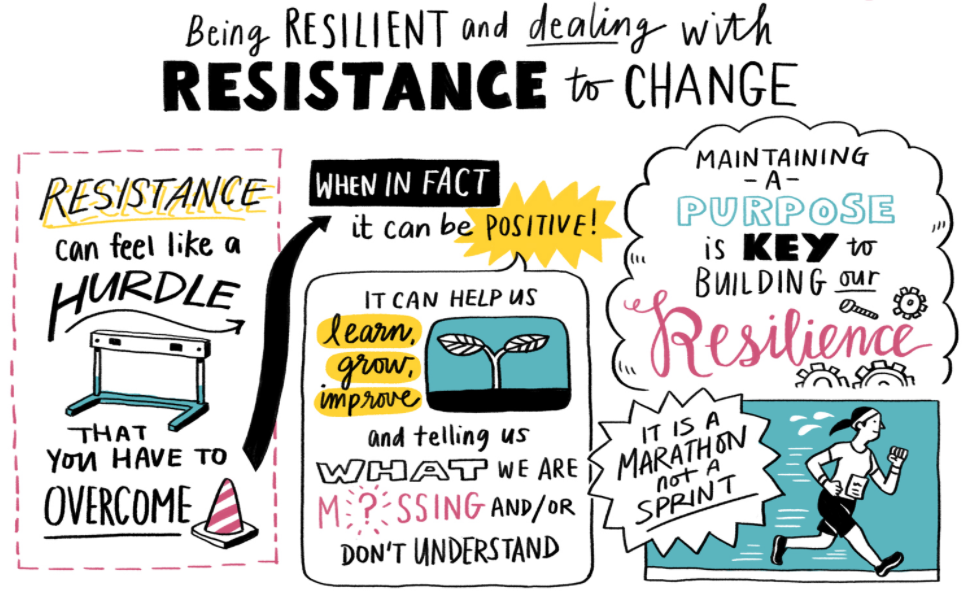 Being RESILIENT and dealing with
RESISTANCE to CHANGE
RESISTANCE
can feel like a
HURDLE
THAT
YOU HAVE TO
OVERCOME
WHEN IN FACT
it can be POSITIVE!
IT CAN HELP US
learn,
grow,
improve
and telling us
WHAT WE ARE
M?SSING AND/OR
DON'T UNDERSTAND
MAINTAINING
-A-
PURPOSE
is KEY to
BUILDING our
Resilience
IT IS A
MARATHON
not A
SPRINT